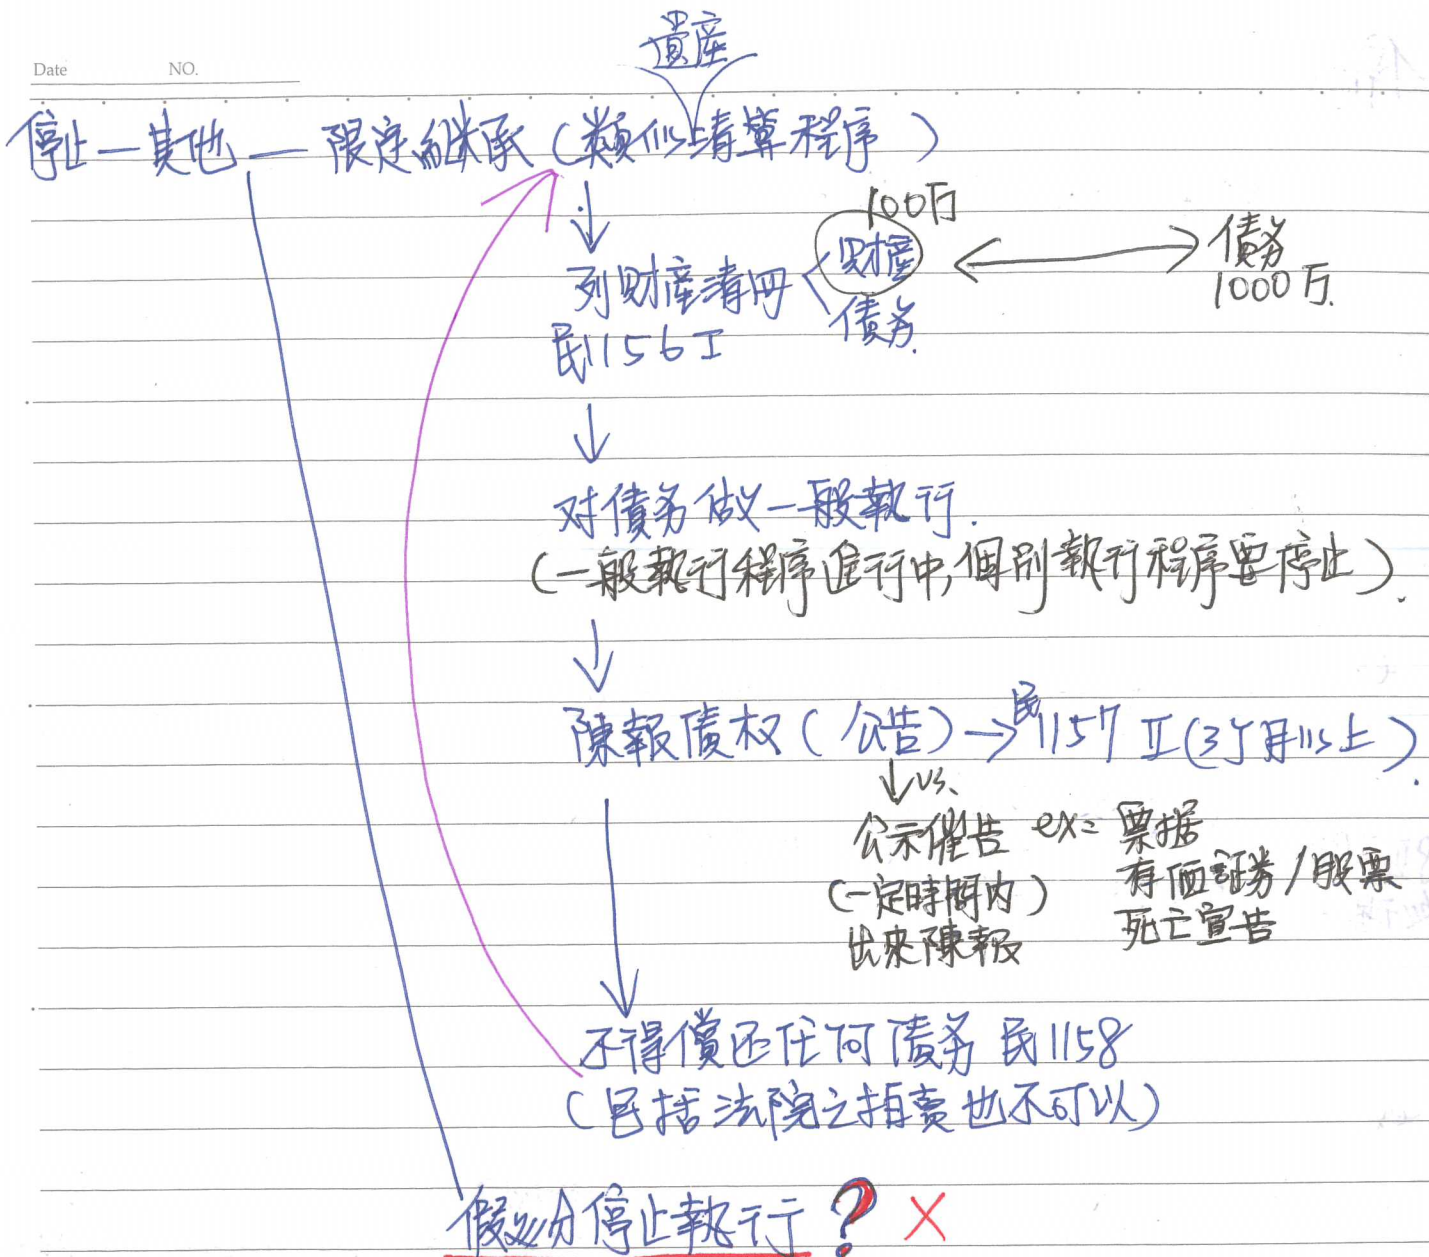 Date NO.
遺産
停止—其他—限定繼承(類似清算程序)
100万
列财產清冊 财產 債務
民1156 I 債务 1000万
↓
对債务做一般執行.
(一般執行程序進行中,個別執行程序要停止).
↓
陳報債权(公告)→民1157 II(3个月以上).
↓vs.
公示催告 ex= 票据
(一定時間內) 有価証券/股票
出來陳報 死亡宣告
不得償还任何債务 民1158
(包括法院之拍賣也不可以)
假処分停止執行?×